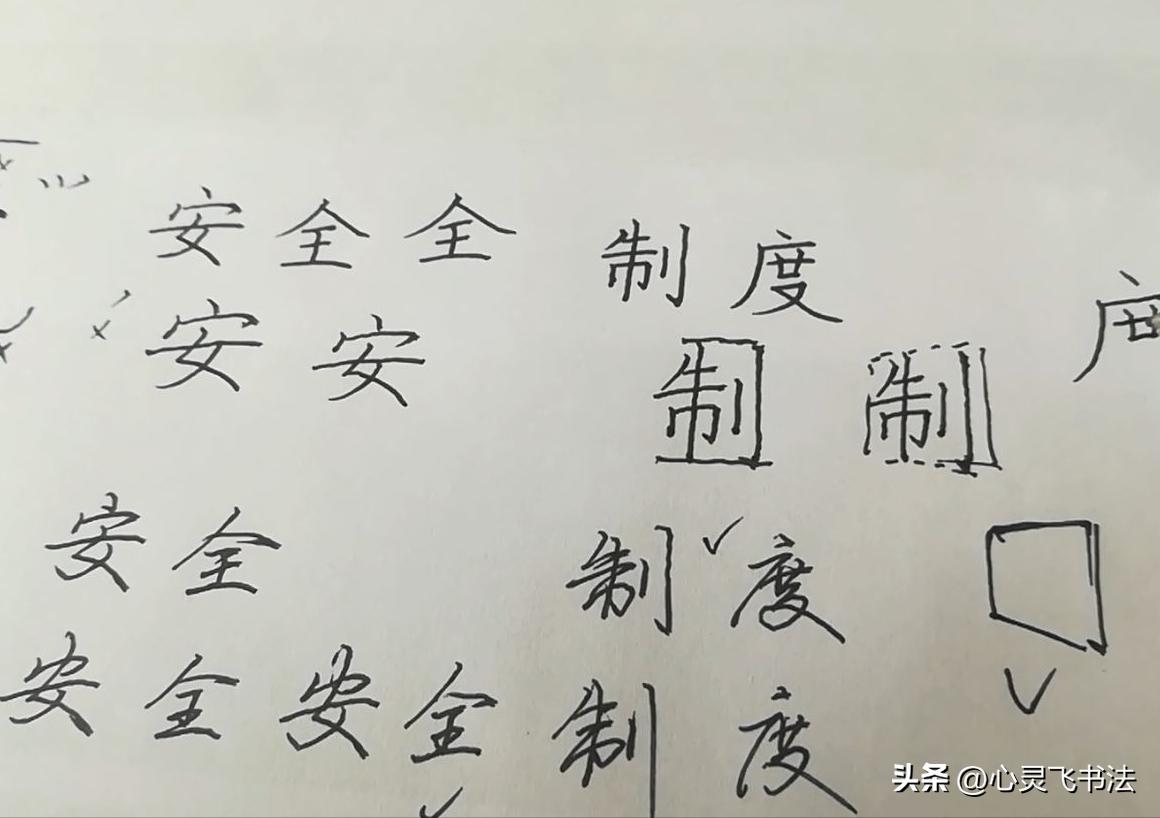 安全全 制度
安安 制制 度
安全 制度
安全安全制度
头条 @心灵飞书法